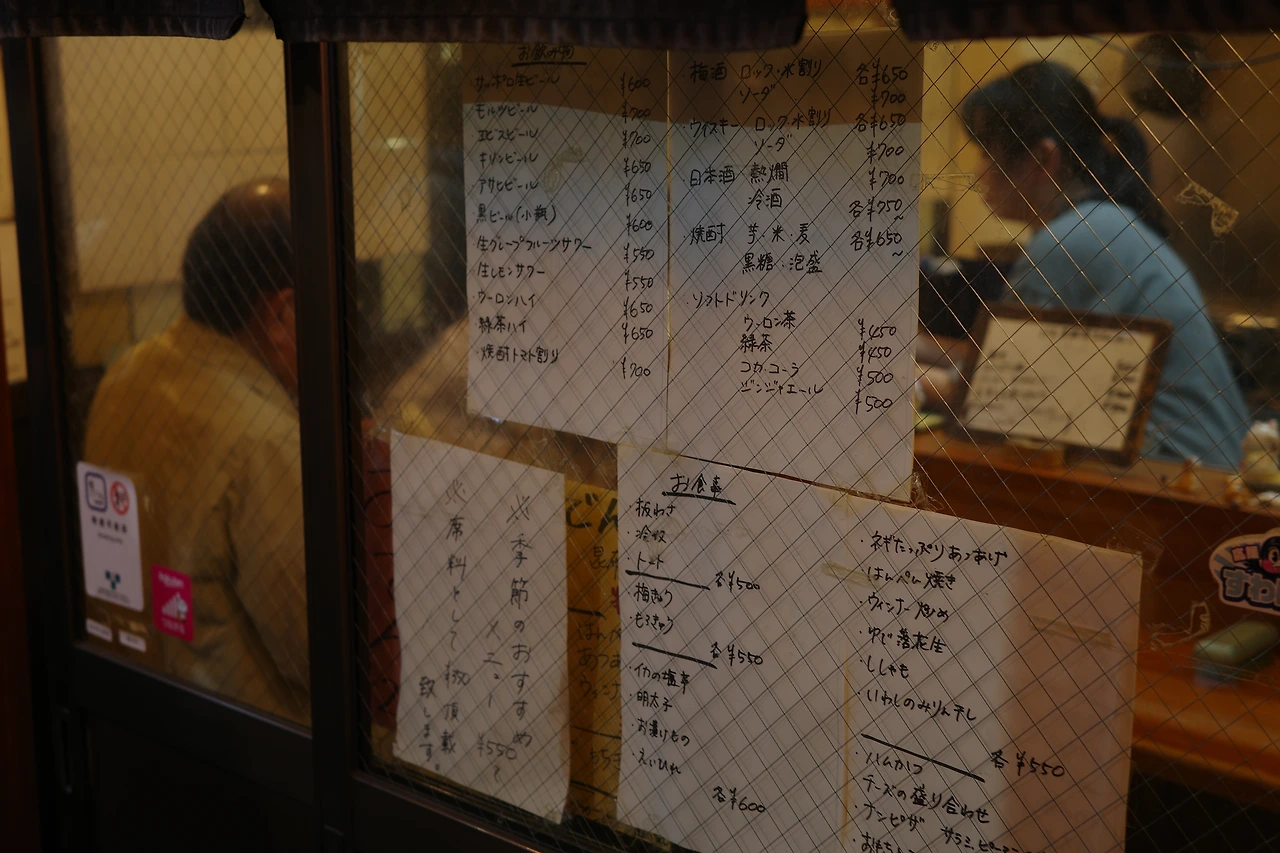 お飲み物
サッポロ生ビール ¥600
モルツビール ¥700
エビスビール ¥700
キリンビール ¥650
アサヒビール ¥650
黒ビール(小瓶) ¥600
生グレープフルーツサワー ¥550
生レモンサワー ¥550
ウーロンハイ ¥650
緑茶ハイ ¥650
・焼酎トマト割り ¥700
梅酒 ロック・水割り 各¥650
ソーダ ¥700
・ウイスキー ロック・水割り 各¥650
ソーダ ¥700
日本酒 熱燗 ¥700
冷酒 各¥750~
・焼酎 芋・米・麦 各¥650~
黒糖・泡盛
・ソフトドリンク
ウーロン茶 ¥450
緑茶 ¥450
コカ・コーラ ¥500
ジンジャエール ¥500
※季節のおすすめ
メニュー ¥550~
※席料として
¥350頂戴
致します。
お食事
・板わさ
・冷奴
・トマト
各¥500
・梅きゅう
・もろきゅう
各¥550
・イカの塩辛
・明太子
・お漬けもの
・えいひれ
各¥600
・ネギたっぷりあつあげ
・はんぺん焼き
・ウィンナー炒め
・ゆで落花生
・ししゃも
・いわしのみりん干し
各¥550
・ハムかつ
・チーズの盛り合わせ
・ナンピザ サラミ、ピーマン